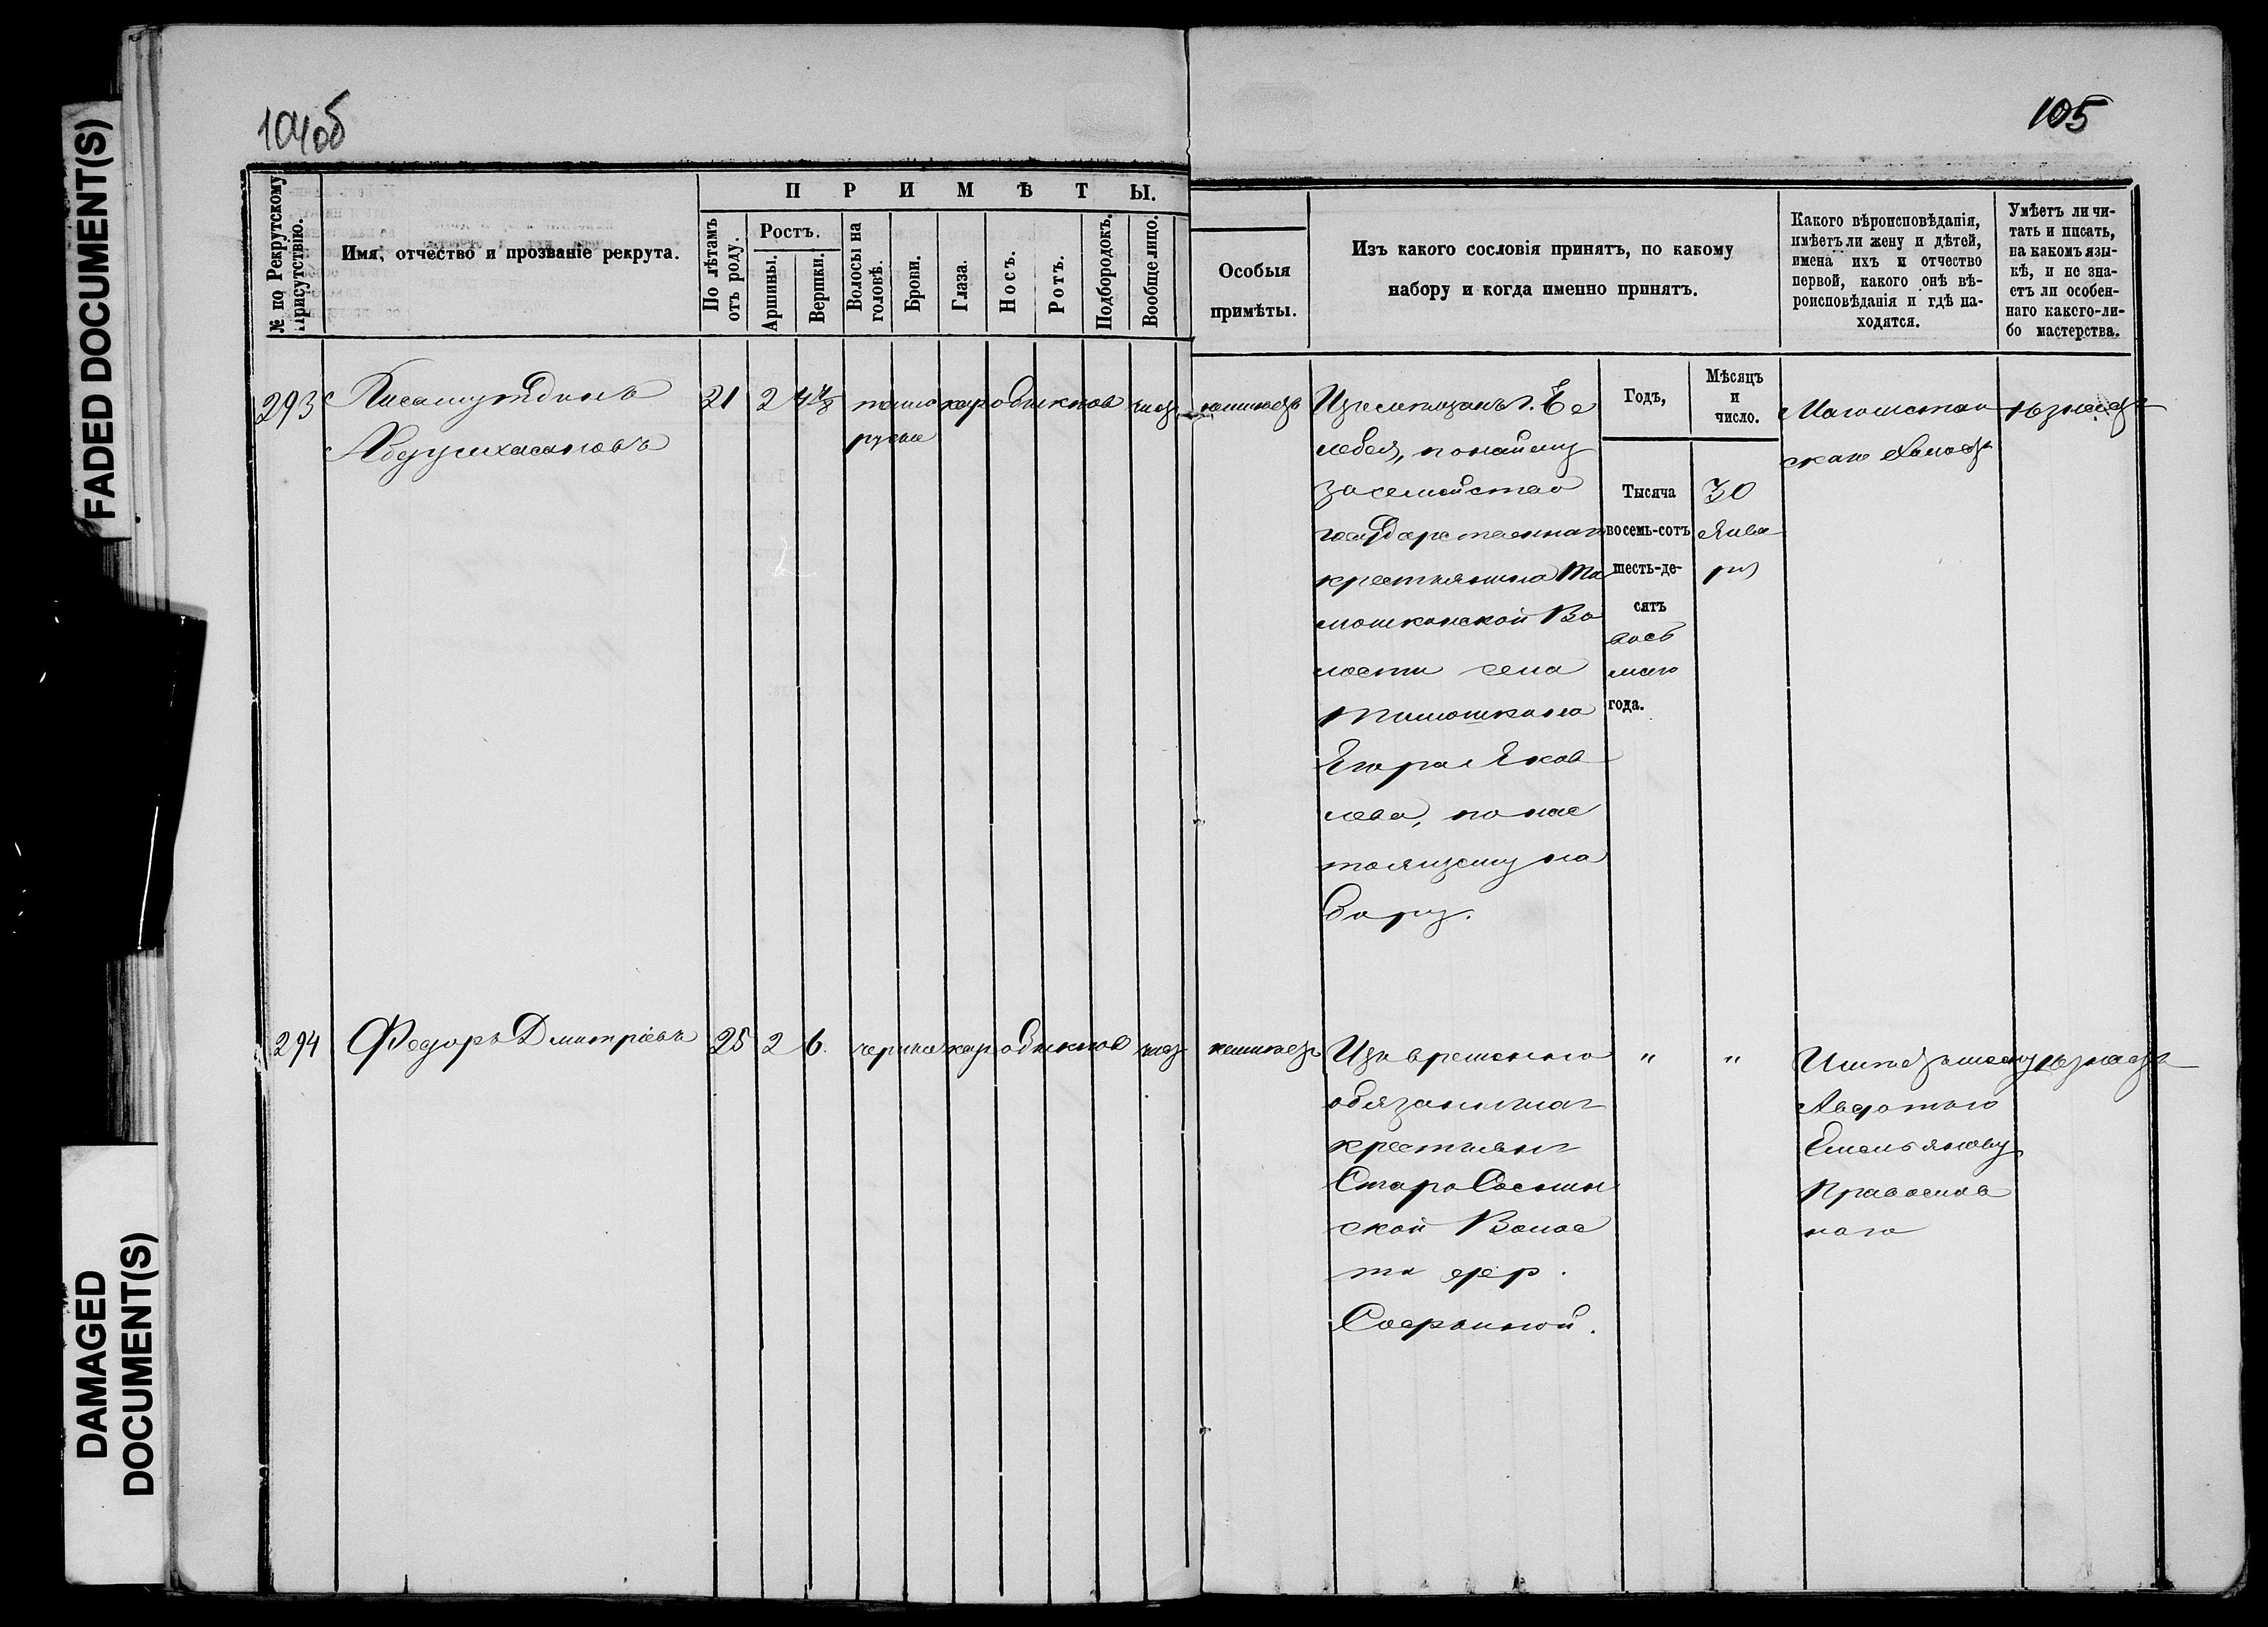 FADED DOCUMENT(S)
DAMAGED
DOCUMENT(S)
104об
105
№ по Рекрутскому
Присутствію.
Имя, отчество и прозваніе рекрута.
ПРИМѢТЫ.
По лѣтамъ
отъ роду.
Ростъ.
Аршины.
Вершки.
Волосы на
головѣ.
Брови.
Глаза.
Носъ.
Ротъ.
Подбородокъ.
Вообще лицо.
Особыя
примѣты.
Изъ какого сословія принятъ, по какому
набору и когда именно принятъ.
Какого вѣроисповѣданія,
имѣетъ ли жену и дѣтей,
имена ихъ и отчество
первой, какого онѣ вѣ-
роисповѣданія и гдѣ на-
ходятся.
Умѣетъ ли чи-
тать и писать,
на какомъ язы-
кѣ, и не зна-
етъ ли особен-
наго какого-ли-
бо мастерства.
Годъ,
Мѣсяцъ
и
число.
293
21 2 4 темно кар обыкнов чист
русые
Изъ мѣщанъ г. Бе
лебея, по найму
за семейство
государственнаго
крестьянина
мошкинской Во
лости села
Тимошкина
Егора Яков
лева, по нас
тоящему на
бору.
Тысяча
восемь-сотъ
шесть-де-
сятъ
вось
маго
года.
30
Янва
ря
Магометан
скаго холостъ
незнаетъ
294 Федоръ Дмитріевъ 25 2 6. черные кар обыкнов чист неимѣетъ
Изъ временно
обязанныхъ
крестьянъ
Старо
ской Волос
ти дер.
" "
Имѣетъ жену
Авдотью
Емельянову
Православ
наго
незнаетъ